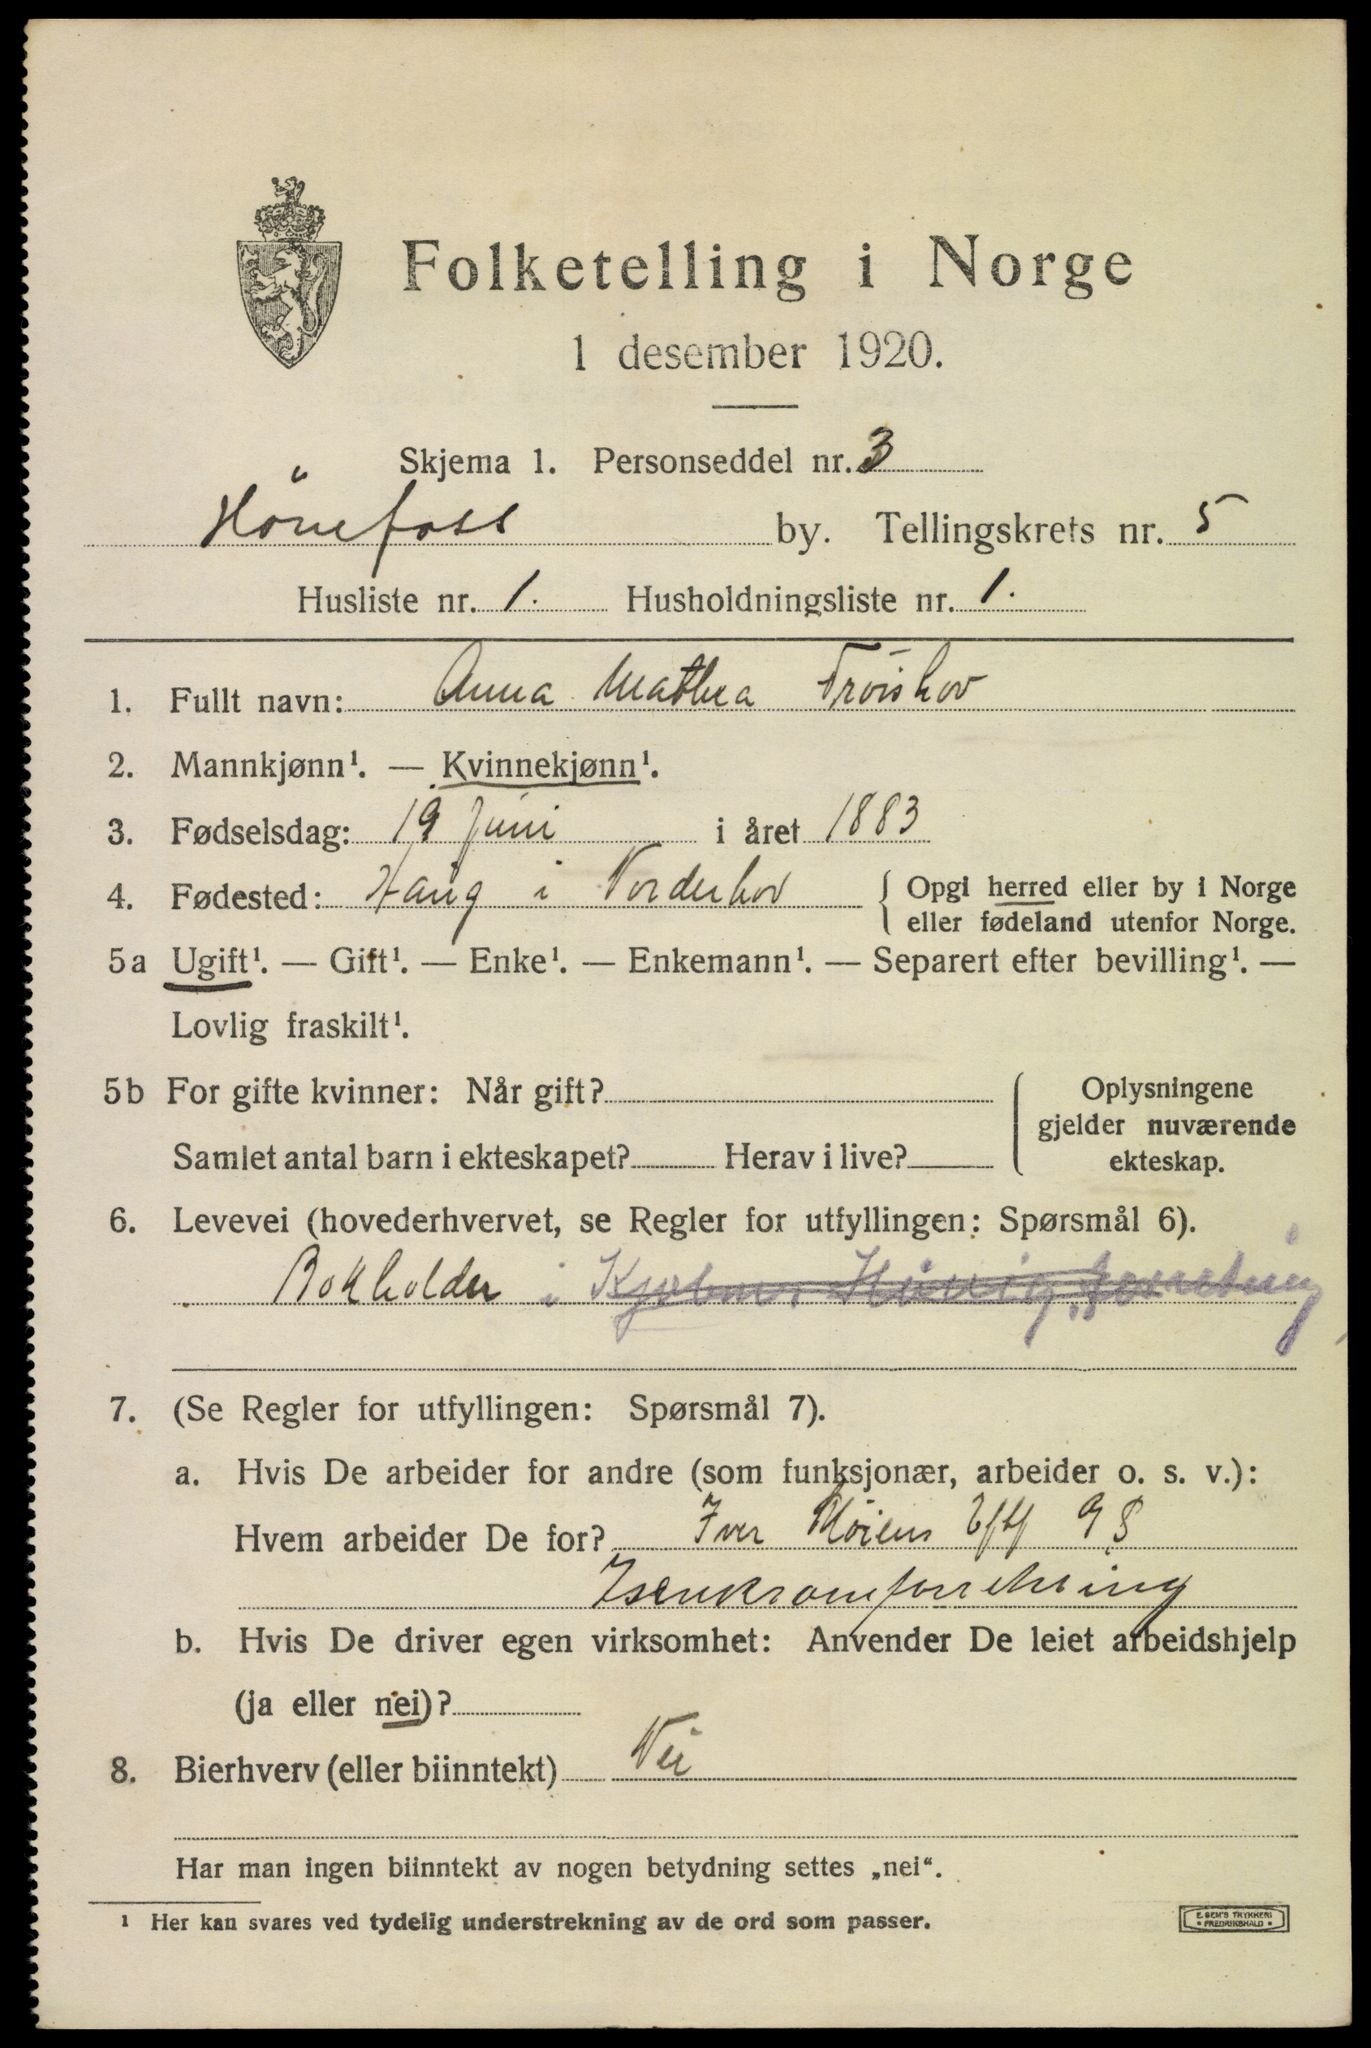 Folketelling i Norge
1 desember 1920.
Skjema 1. Personseddel nr. 3
Hönefoss by. Tellingskrets nr. 5
Husliste nr. 1. Husholdningsliste nr. 1.
1. Fullt navn: Anna Mathea Tröishov
2. Mannkjønn¹. — Kvinnekjønn¹.
3. Fødselsdag: 19 Juni i året 1883
4. Fødested: Haug i Norderhov { Opgi herred eller by i Norge
eller fødeland utenfor Norge.
5a Ugift¹. — Gift¹. — Enke¹. — Enkemann¹. — Separert efter bevilling¹. —
Lovlig fraskilt¹.
5b For gifte kvinner: Når gift? Oplysningene
gjelder nuværende
Samlet antal barn i ekteskapet? Herav i live? ekteskap.
6. Levevei (hovederhvervet, se Regler for utfyllingen: Spørsmål 6).
Bokholder i
7. (Se Regler for utfyllingen: Spørsmål 7).
a. Hvis De arbeider for andre (som funksjonær, arbeider o. s. v.):
Hvem arbeider De for? Iver Eftf
Isenkramforretning
b. Hvis De driver egen virksomhet: Anvender De leiet arbeidshjelp
(ja eller nei)?
8. Bierhverv (eller biinntekt) Nei
Har man ingen biinntekt av nogen betydning settes „nei“.
¹ Her kan svares ved tydelig understrekning av de ord som passer.
E. SEM'S TRYKKERI
• FREDRIKSHALD •